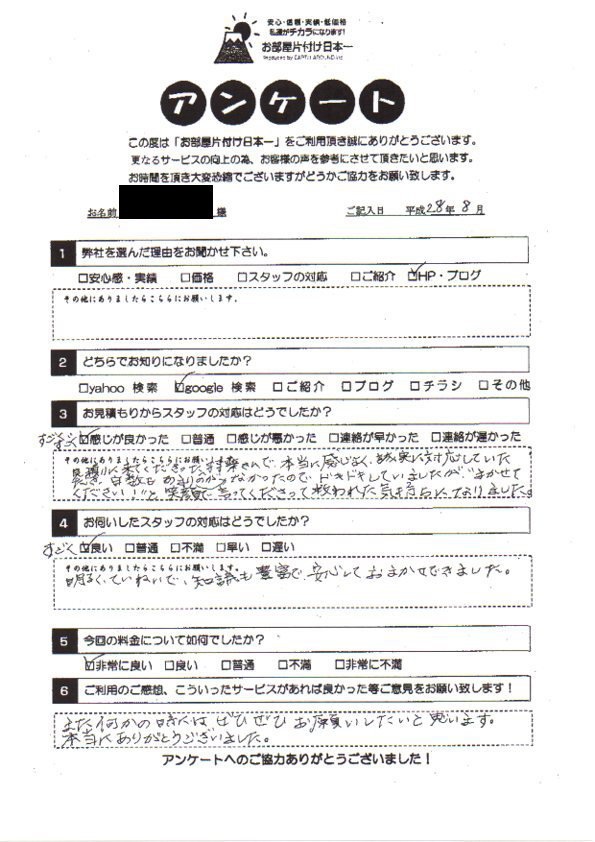 安心・信頼・実績・低価格
私達がチカラになります!
お部屋片付け日本一
アンケート
この度は「お部屋片付け日本一」をご利用頂き誠にありがとうございます。
更なるサービスの向上の為、お客様の声を参考にさせて頂きたいと思います。
お時間を頂き大変恐縮でございますがどうかご協力をお願い致します。
お名前 様 ご記入日 平成28年8月
1 弊社を選んだ理由をお聞かせ下さい。
□安心感・実績 □価格 □スタッフの対応 □ご紹介 ☑HP・ブログ
その他にありましたらこちらにお願いします。
2 どちらでお知りになりましたか?
□yahoo 検索 ☑google 検索 □ご紹介 □ブログ □チラシ □その他
3 お見積もりからスタッフの対応はどうでしたか?
すごくすごく ☑感じが良かった □普通 □感じが悪かった □連絡が早かった □連絡が遅かった
その他にありましたらこちらにお願いします。
見積りに来てくださった さんで、本当に感じよく、 に対応していた
だき、 なかったので、ドキドキしていましたが、"まかせて
ください!!"と笑顔で言ってくださって救われた気持ちになりました。
4 お伺いしたスタッフの対応はどうでしたか?
すごく ☑良い □普通 □不満 □早い □遅い
その他にありましたらこちらにお願いします。
明るく、ていねいで、知識も豊富で、安心しておまかせできました。
5 今回の料金について如何でしたか?
☑非常に良い □良い □普通 □不満 □非常に不満
6 ご利用のご感想、こういったサービスがあれば良かった等ご意見をお願い致します!
また何かの時にはぜひぜひお願いしたいと思います。
本当にありがとうございました。
アンケートへのご協力ありがとうございました!